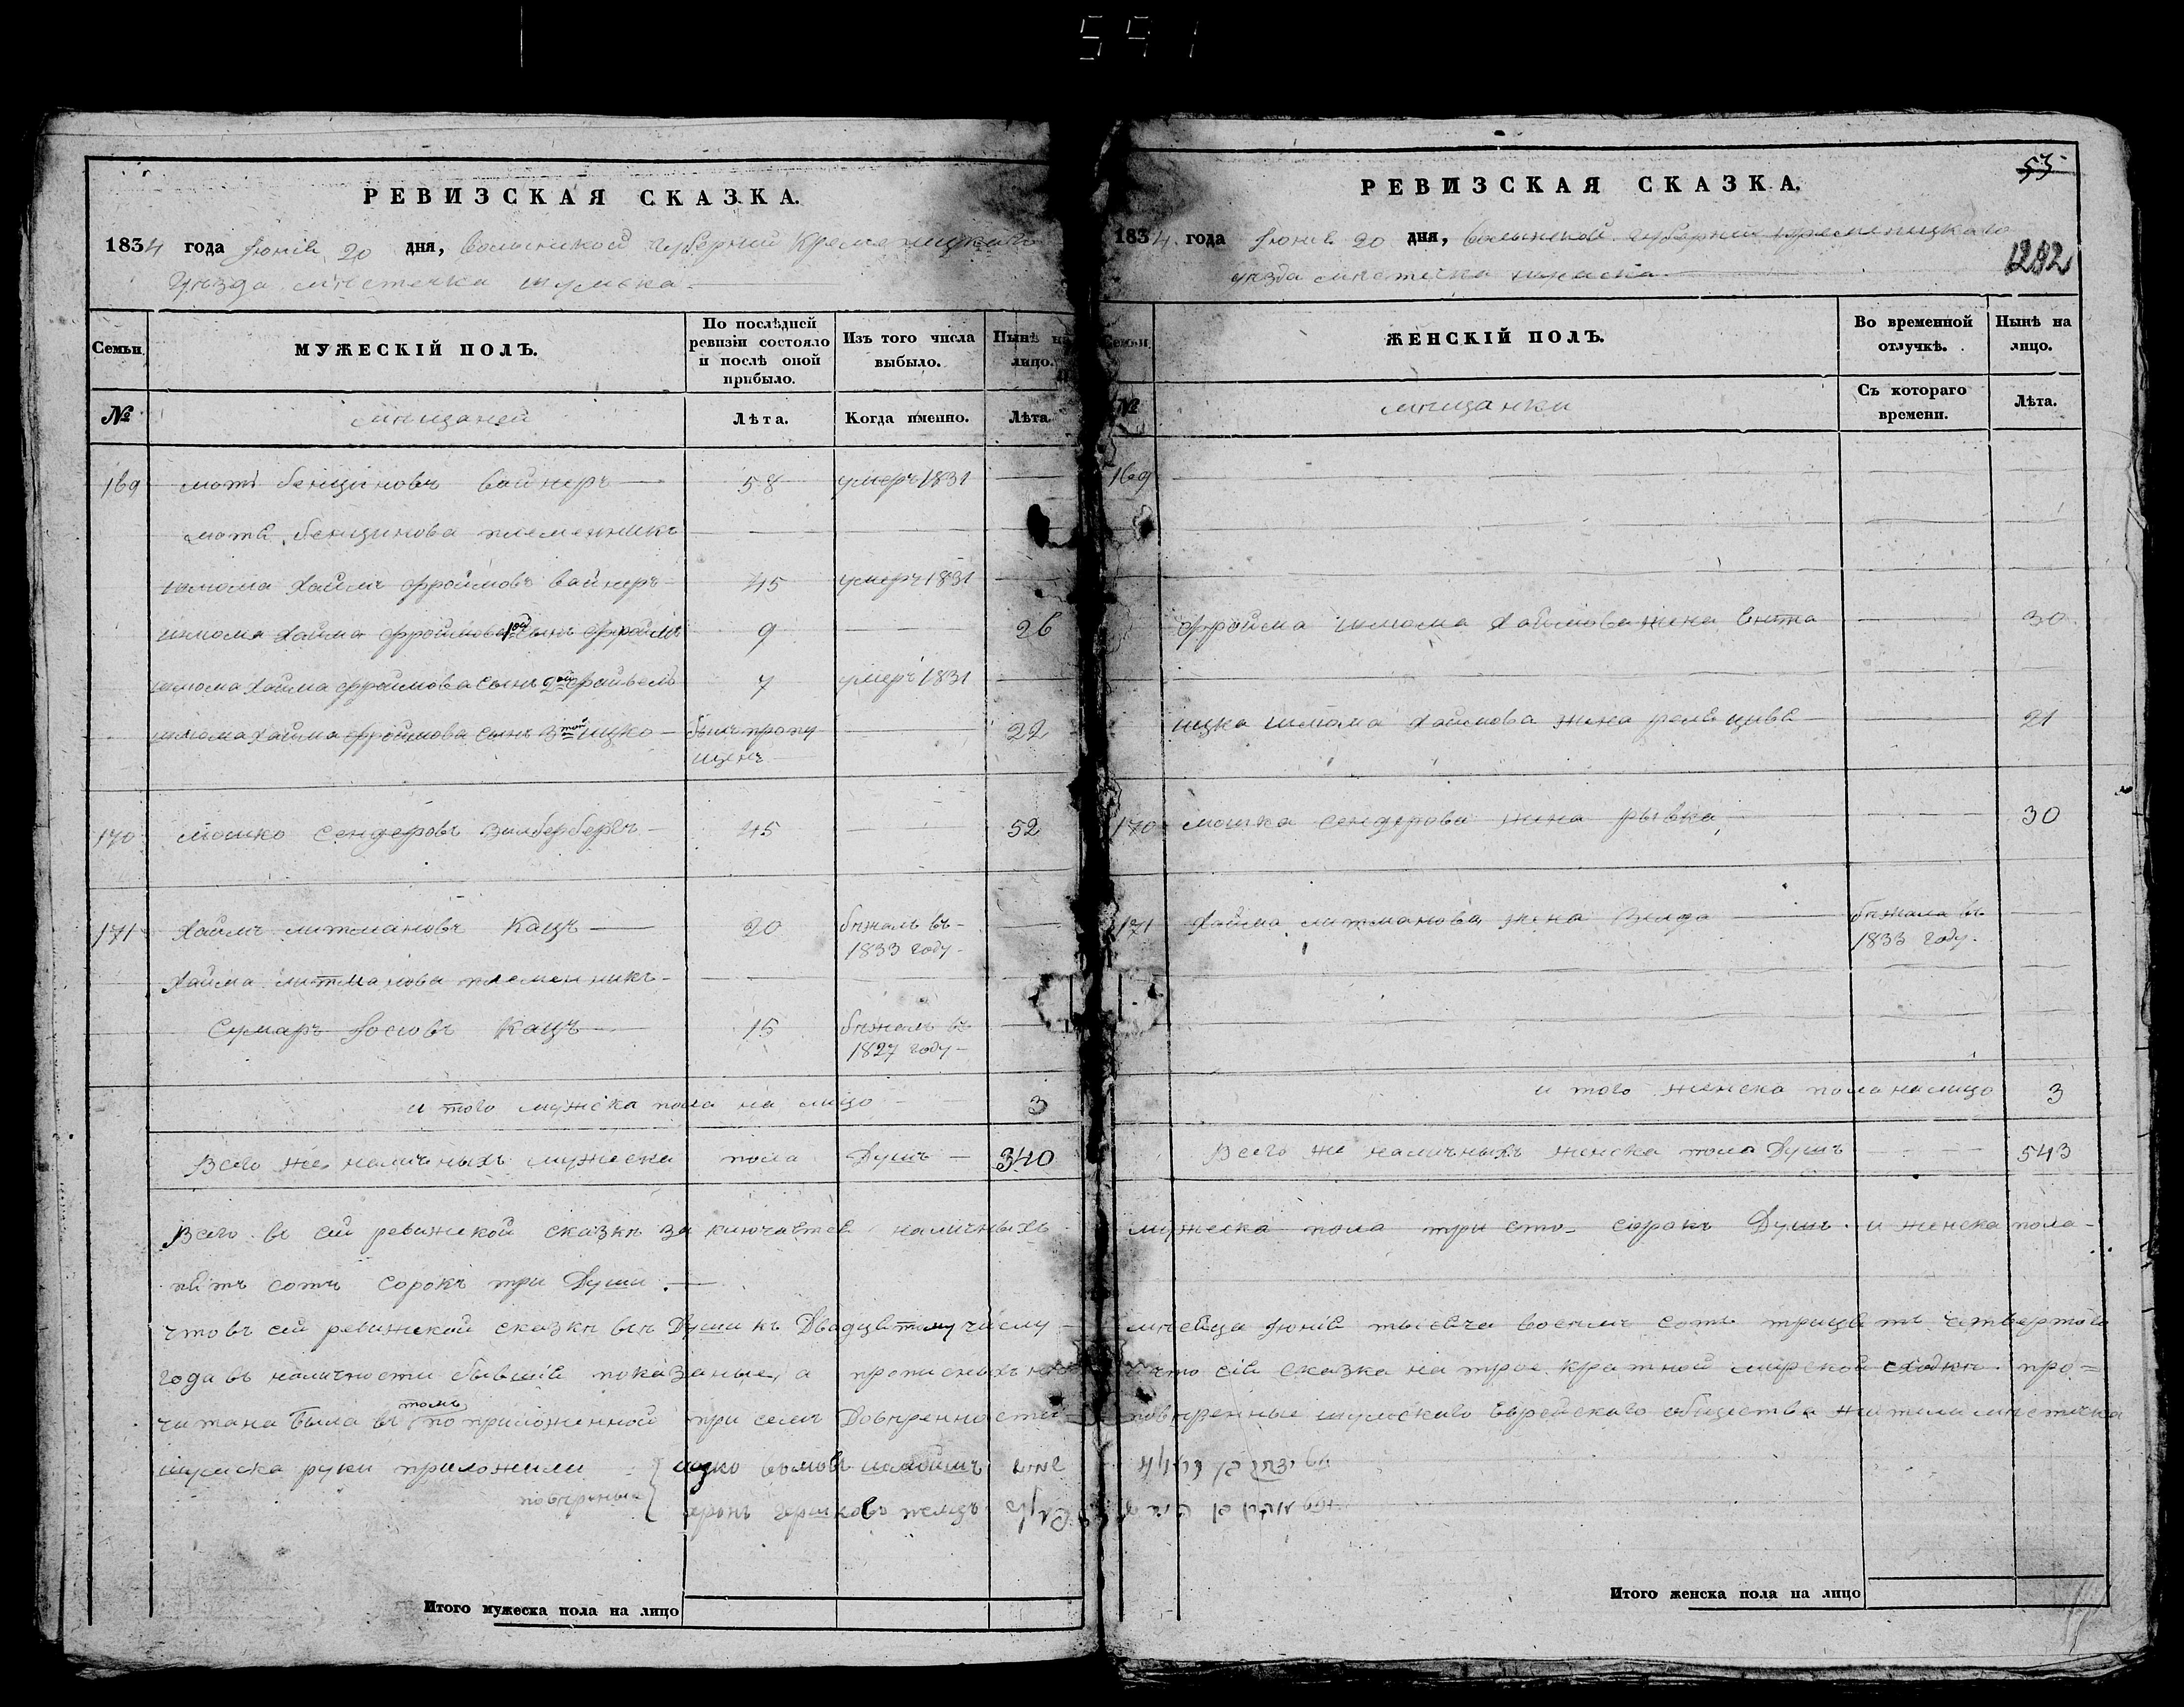 551
РЕВИЗСКАЯ СКАЗКА.
1834 года Июня 20 дня, волынской губернии Кременецкаго
уѣзда мѣстечка шумска
Семьи
МУЖЕСКІЙ ПОЛЪ.
По послѣдней ревизіи состояло и послѣ оной прибыло.
Изъ того числа выбыло.
Нынѣ на лицо.
№
мещаней
Лѣта.
Когда именно.
Лѣта.
169 мотя бенционовъ вайнеръ 58 умеръ 1831
мотя бенцинова племенникъ
шлома хаимъ фроимовъ вайнеръ 45 умеръ 1831
шлома хаима фроимова 1ой сынъ фроимъ 9 26
шлома хаима фроимова сынъ 2ой файвель 7 умеръ 1831
шлома хаима фроимова сынъ 3той ицко былъ пропущенъ 22
170 мошко сендеровъ зильбербергъ 45 52
171 хаимъ литмановъ Кацъ 20 бѣжалъ въ 1833 году
хаима литманова племенникъ
Сумаръ Iосiовъ Кацъ 15 бѣжалъ въ 1827 году
и того мужска пола на лицо 3
Всего же наличныхъ мужеска пола Душъ 340
РЕВИЗСКАЯ СКАЗКА.
53
1834 года Июня 20 дня, волынской губернии кременецкаго
уезда мѣстечка шумска
1282
Семьи
ЖЕНСКІЙ ПОЛЪ.
Во временной отлучкѣ.
Нынѣ на лицо.
№
мѣщанки
Съ котораго времени.
Лѣта.
169
фроима шлома хаимова жена витта 30
ицка шлома хаимова жена цивя 21
170 мошка сендерова жена рывка 30
171 хаима литманова жена Велда бежала въ 1833 году.
и того женска пола налицо 3
Всего же наличныхъ женска пола Душъ 543
Всего въ сей ревижской сказкѣ заключается наличныхъ мужеска пола три сто сорокъ Душъ и женска пола
пять сотъ сорокъ три Души.
что въ сей ревижской сказкѣ всѣ Души къ Двадцятому числу месяца Июня тысяча восемь сотъ трицять четвертого
года въ наличности бывшiя показаные, а прописныхъ нѣтъ и что сiя сказка на трое кратной мирской сходкѣ про=
читана была въ томъ по приложенной при семъ Доверенности поверенные шумскаго Еврейскаго общества жители мѣстечка
шумска руки приложили
поверенные
ицко
Итого мужеска пола на лицо
Итого женска пола на лицо